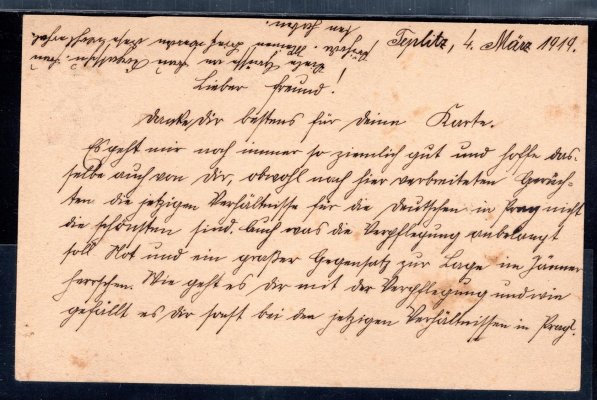 Teplitz, 4. März 1919.
Lieber Freund!
Danke Dir bestens für Deine Karte.
Es geht mir noch immer so ziemlich gut und hoffe das-
selbe auch von Dir, obwohl nach hier verbreiteten Gerüch-
ten die jetzigen Verhältnisse für die Deutschen in Prag nicht
die schönsten sind. Auch was die Verpflegung anbelangt
soll Not und ein großer Gegensatz zur Lage im Jänner
herrschen. Wie geht es Dir mit der Verpflegung und wie
gefällt es Dir sonst bei den jetzigen Verhältnissen in Prag?